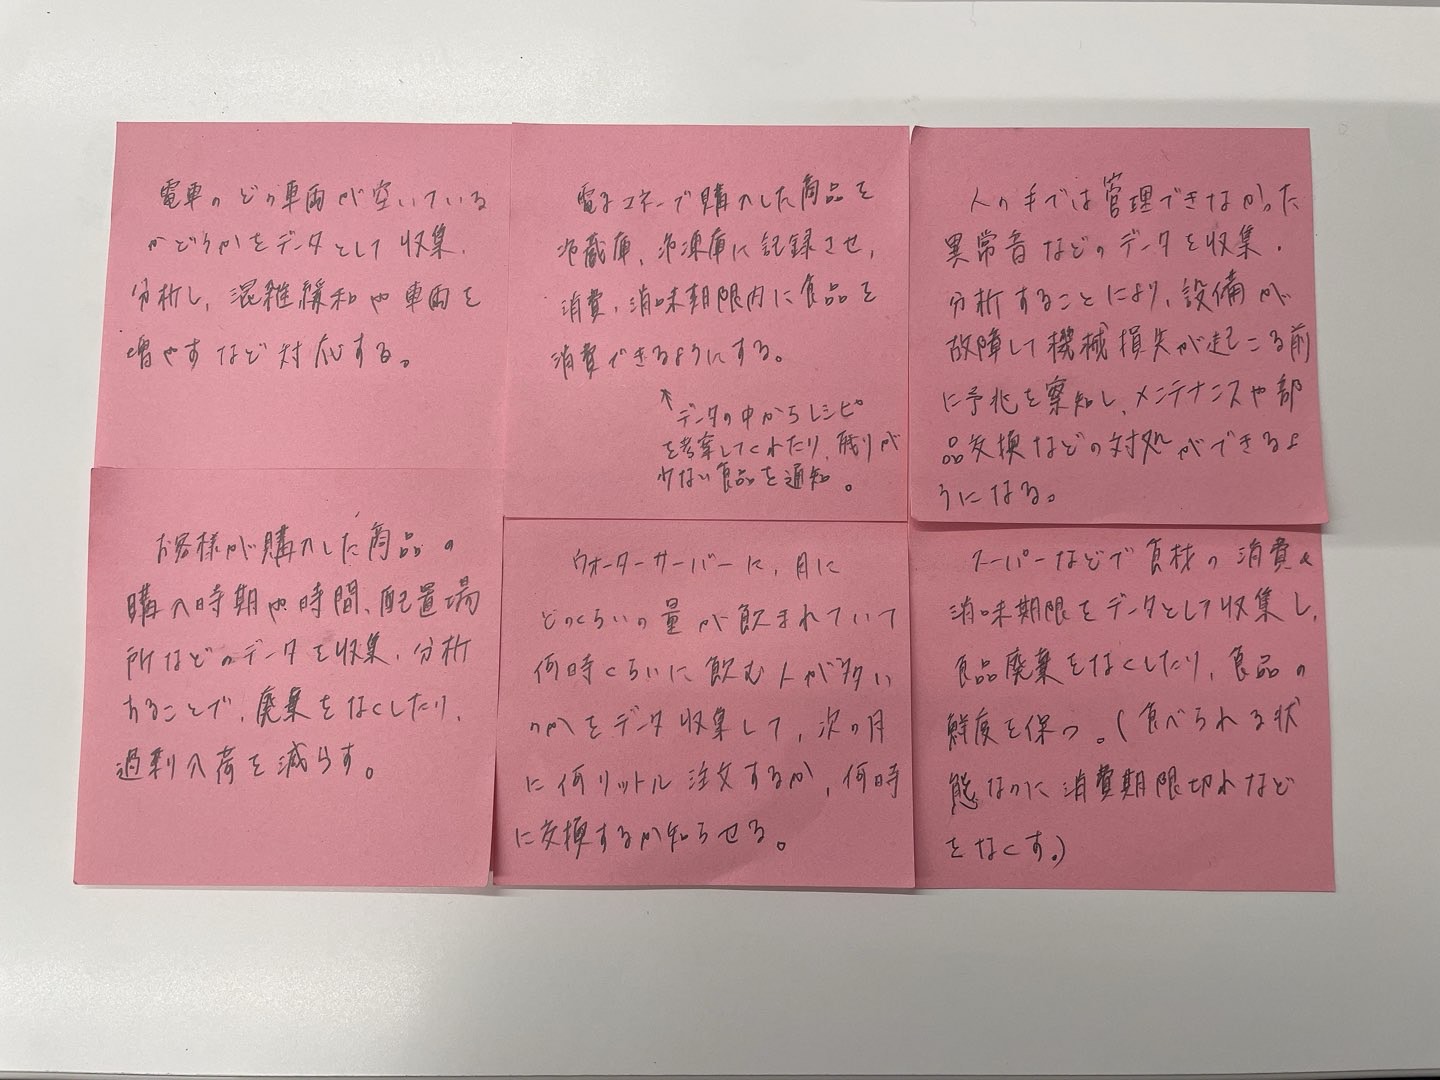 電車のどの車両が空いている
かどうかをデータとして収集、
分析し、混雑緩和や車両を
増やすなど対応する。
電子マネーで購入した商品を
冷蔵庫、冷凍庫に記録させ、
消費、消味期限内に食品を
消費できるようにする。
↑データの中からレシピ
を考案してくれたり、残りが
少ない食品を通知。
人の手では管理できなかった
異常音などのデータを収集、
分析することにより、設備が
故障して機械損失が起こる前
に予兆を察知し、メンテナンスや部
品交換などの対処ができるよ
うになる。
お客様が購入した商品の
購入時期や時間、配置場
所などのデータを収集、分析
することで、廃棄をなくしたり、
過剰入荷を減らす。
ウォーターサーバーに、月に
どのくらいの量が飲まれていて
何時くらいに飲む人が多い
のかをデータ収集して、次の月
に何リットル注文するか、何時
に交換するか知らせる。
スーパーなどで食材の消費&
消味期限をデータとして収集し、
食品廃棄をなくしたり、食品の
鮮度を保つ。(食べられる状
態なのに消費期限切れなど
をなくす。)